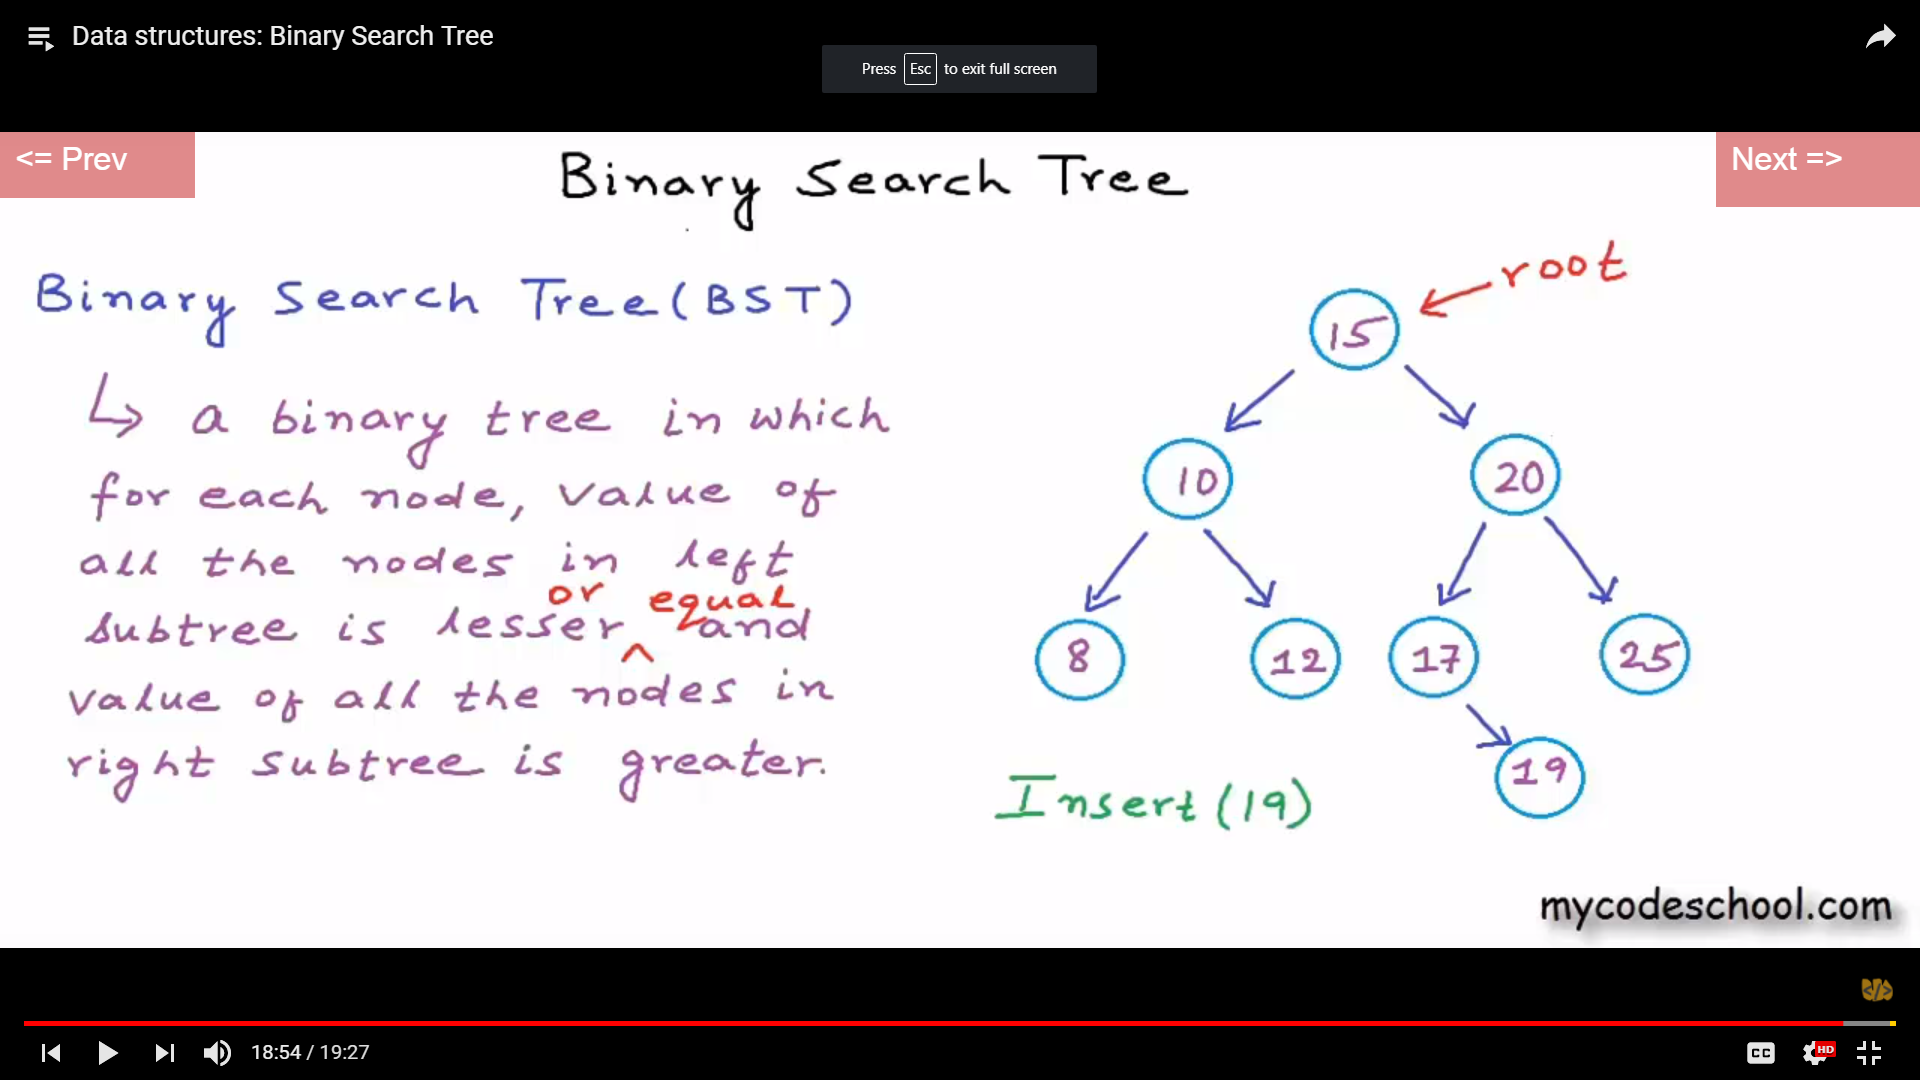 Data structures: Binary Search Tree
Press Esc to exit full screen
<= Prev
Next =>
Binary Search Tree
Binary Search Tree (BST)
↳ a binary tree in which
for each node, value of
all the nodes in left
or equal
subtree is lesser ^ and
value of all the nodes in
right subtree is greater.
root
15
10
20
8
12
17
25
19
Insert (19)
mycodeschool.com
18:54 / 19:27
CC
HD